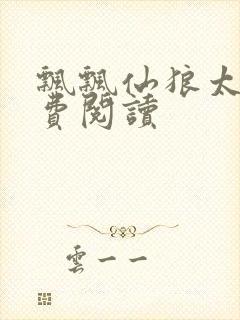 飄飄仙狼太
費閱讀
雲一一